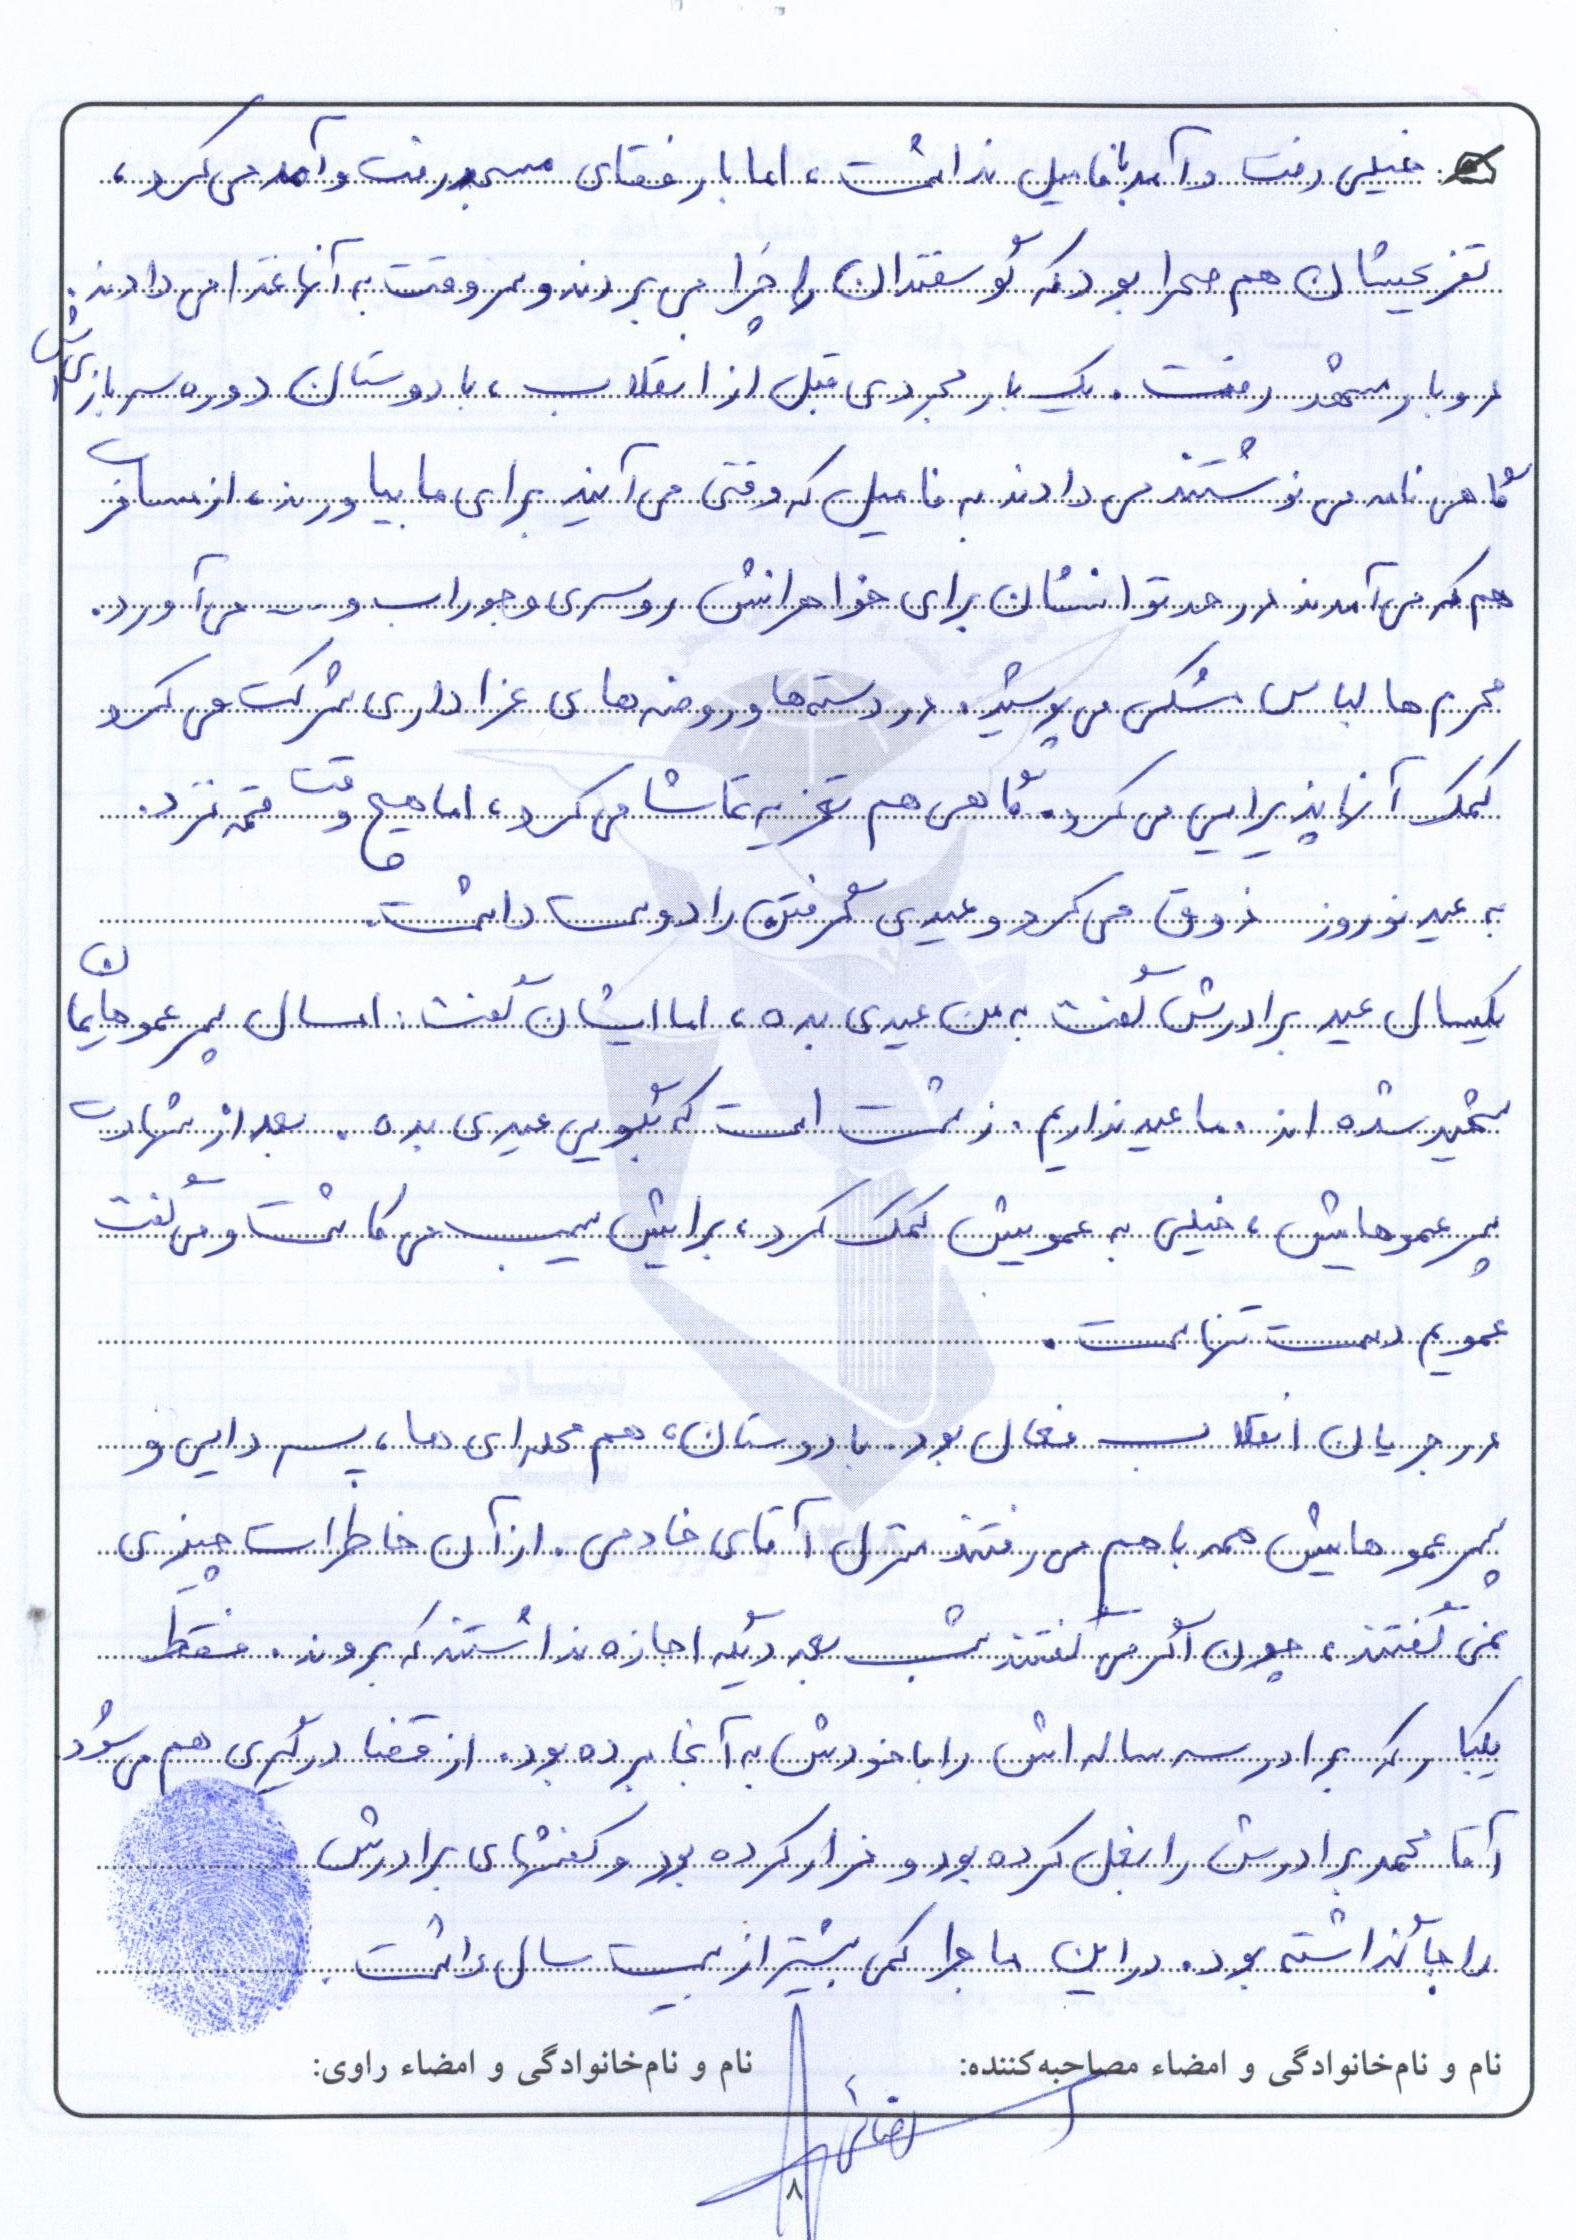 خیلی رفت و آمد با فامیل نداشت، اما با رفقای مسجد رفت و آمد می کرد،
تفریحیشان هم صحرا بود که گوسفندان را چَرا می بردند و سر وقت به آنها غذا می دادند.
دو بار مشهد رفت. یک بار مجردی قبل از انقلاب، با دوستان دوره سربازی اش
گاهی نامه می نوشتند می دادند به فامیل که وقتی می آیند برای ما بیاورند، از مسافرت
هم که می آمدند در حد توانشان برای خواهرانش روسری و جوراب و ... می آورد.
محرم ها لباس مشکی می پوشید. در دسته ها و روضه های عزاداری شرکت می کرد
کمک آنها پذیرایی می کرد. گاهی هم تعزیه تماشا می کرد، اما هیچ وقت قمه نزد.
به عید نوروز ذوق می کرد و عیدی گرفتن را دوست داشت.
یکسال عید برادرش گفت به من عیدی بده، اما ایشان گفت: امسال پسر عموهایمان
شهید شده اند. ما عید نداریم. زشت است که بگویی عیدی بده. بعد از شهادت
پسر عموهایش، خیلی به عمویش کمک کرد، برایش سیب می کاشت و می گفت
عمویم دست تنهاست.
در جریان انقلاب فعال بود. با دوستان، هم محله ای ها، پسر دایی و
پسر عموهایش همه با هم می رفتند منزل آقای خادمی. از آن خاطرات چیزی
نمی گفتند، چون اگر می گفتند شب بعد دیگه اجازه نداشتند که بروند. فقط
یکبار که برادر سه ساله اش را با خودش به آنجا برده بود. از قضا درگیری هم می شود
آقا محمد برادرش را بغل کرده بود و فرار کرده بود و کفشهای برادرش
را جا گذاشته بود. در این ماجرا کمی بیشتر از بیست سال داشت.
نام و نام‌خانوادگی و امضاء مصاحبه‌کننده: نام و نام‌خانوادگی و امضاء راوی:
۸